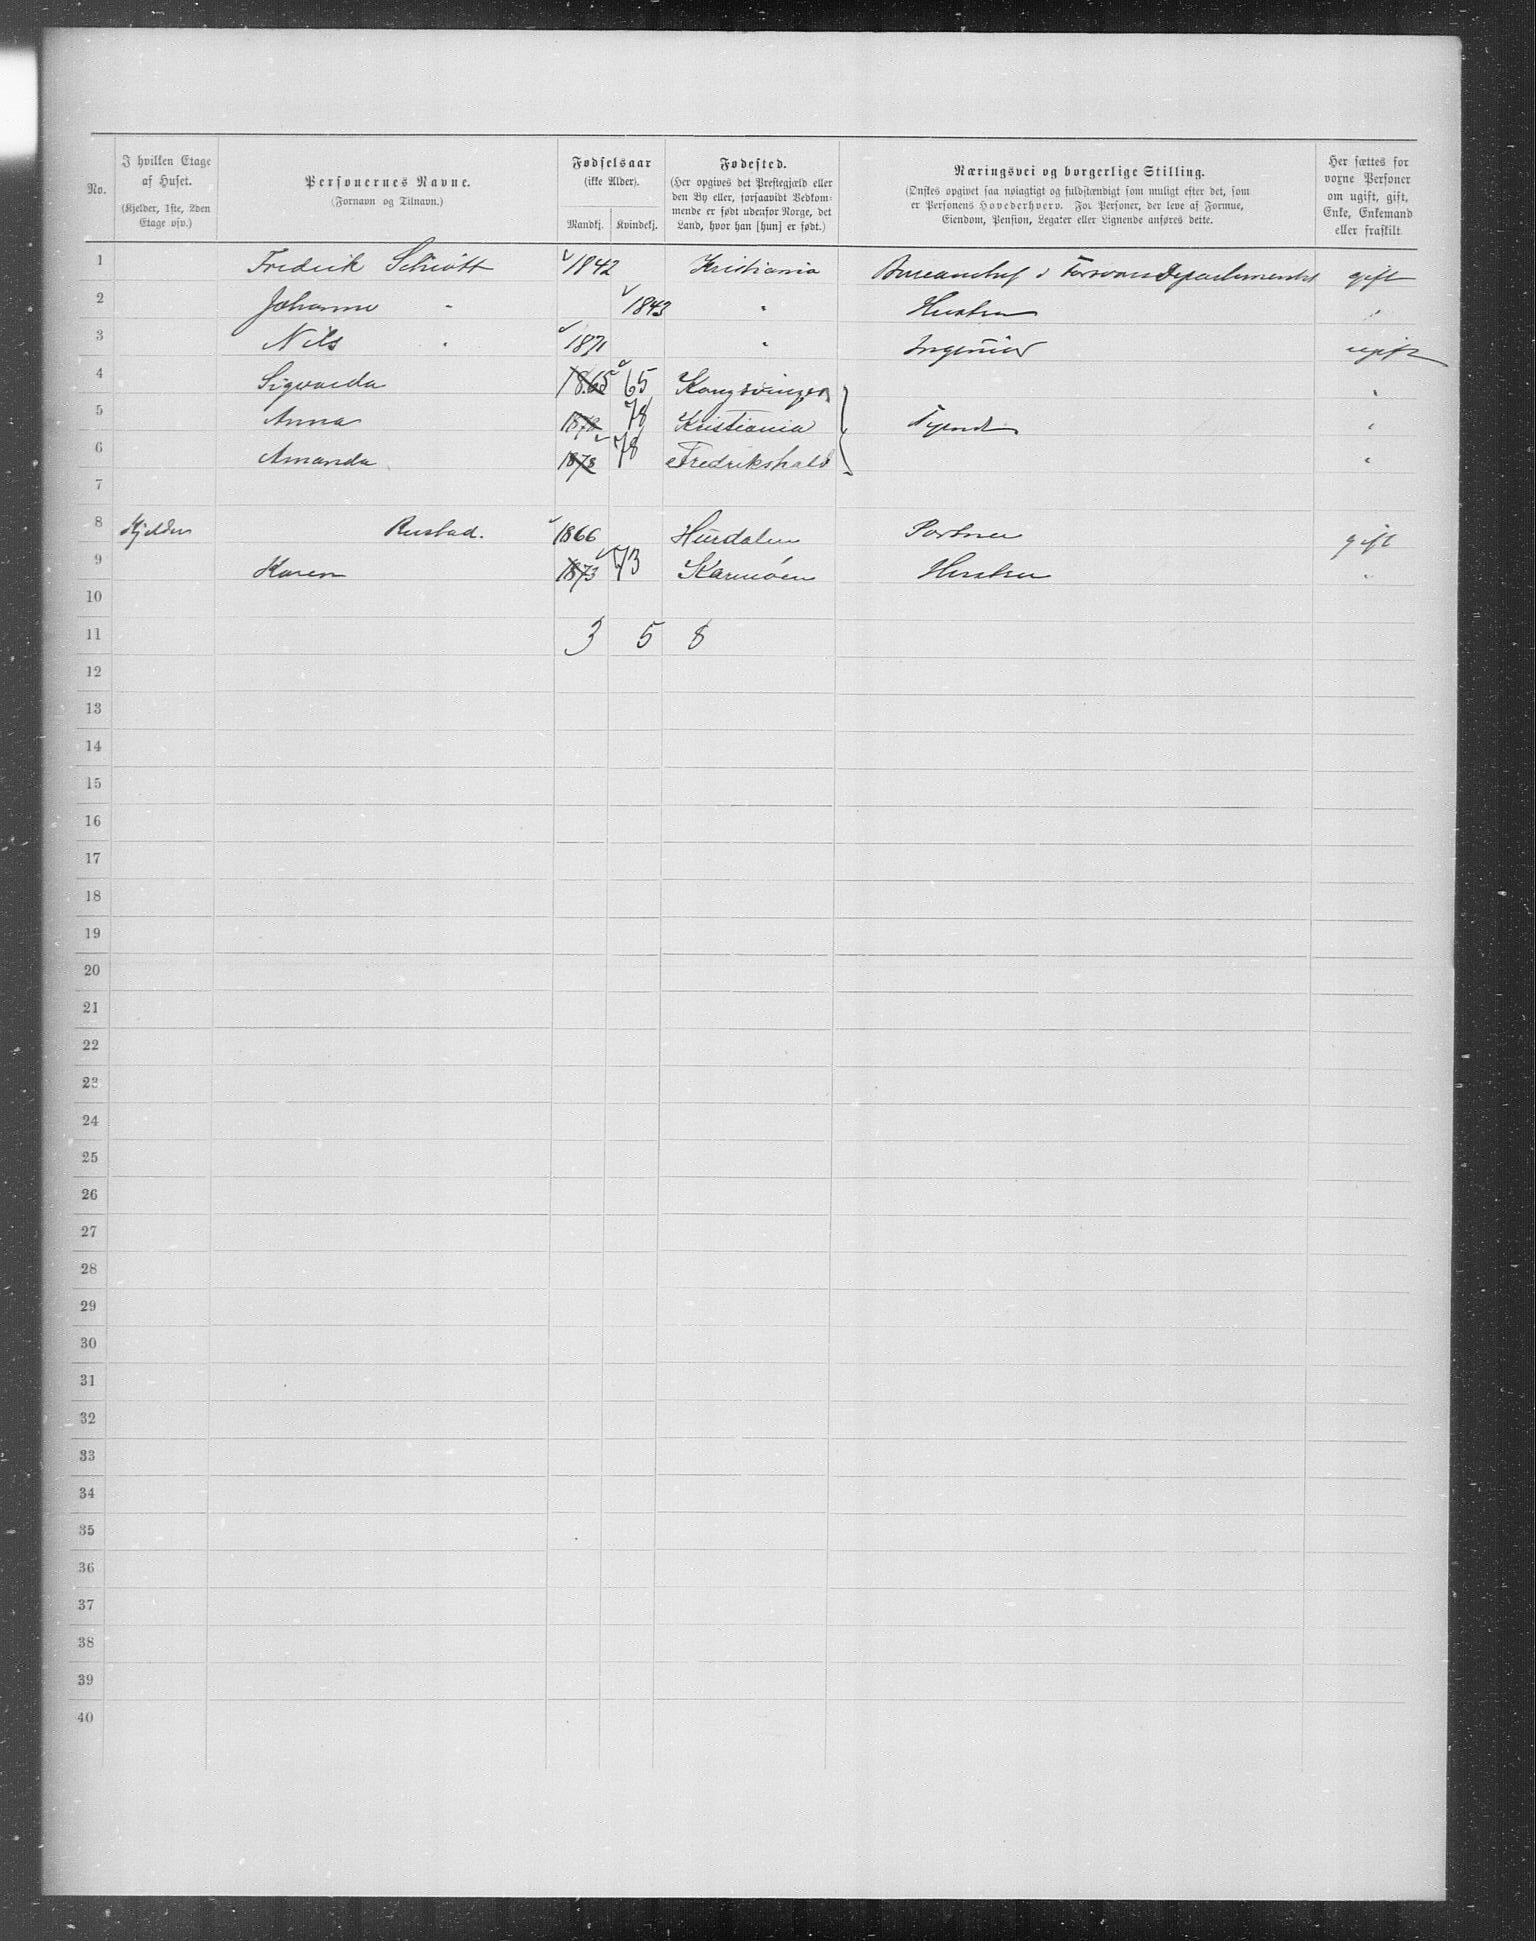 No. | I hvilken Etage af Huset. (Kjelder, 1ste, 2den Etage osv.) | Personernes Navne. (Fornavn og Tilnavn.) | Fødselsaar (ikke Alder). Mandkj. | Kvindekj. | Fødested. (Her opgives det Prestegjæld eller den By eller, forsaavidt Vedkommende er født udenfor Norge, det Land, hvor han [hun] er født.) | Næringsvei og borgerlige Stilling. (Ønskes opgivet saa nøiagtigt og fuldstændigt som muligt efter det, som er Personens Hovederhverv. For Personer, der leve af Formue, Eiendom, Pension, Legater eller Lignende anføres dette. | Her sættes for voxne Personer om ugift, gift, Enke, Enkemand eller fraskilt
1 Fredrik Schiøtt 1842 Kristiania Bureauchef i Forsvarsdepartementet gift
2 Johanne " 1843 " Hustru "
3 Nils " 1871 " Ingeniør ugift
4 Sigvarda 1865 65 Kongsvinger "
5 Anna 1878 78 Kristiania Tyende "
6 Amanda 1878 78 Fredrikshald "
7
8 Kjelder Rustad. 1866 Hurdalen Portner gift
9 Karen 1873 73 Karmøen Hustru "
10
11 3 5 8
12
13
14
15
16
17
18
19
20
21
22
23
24
25
26
27
28
29
30
31
32
33
34
35
36
37
38
39
40